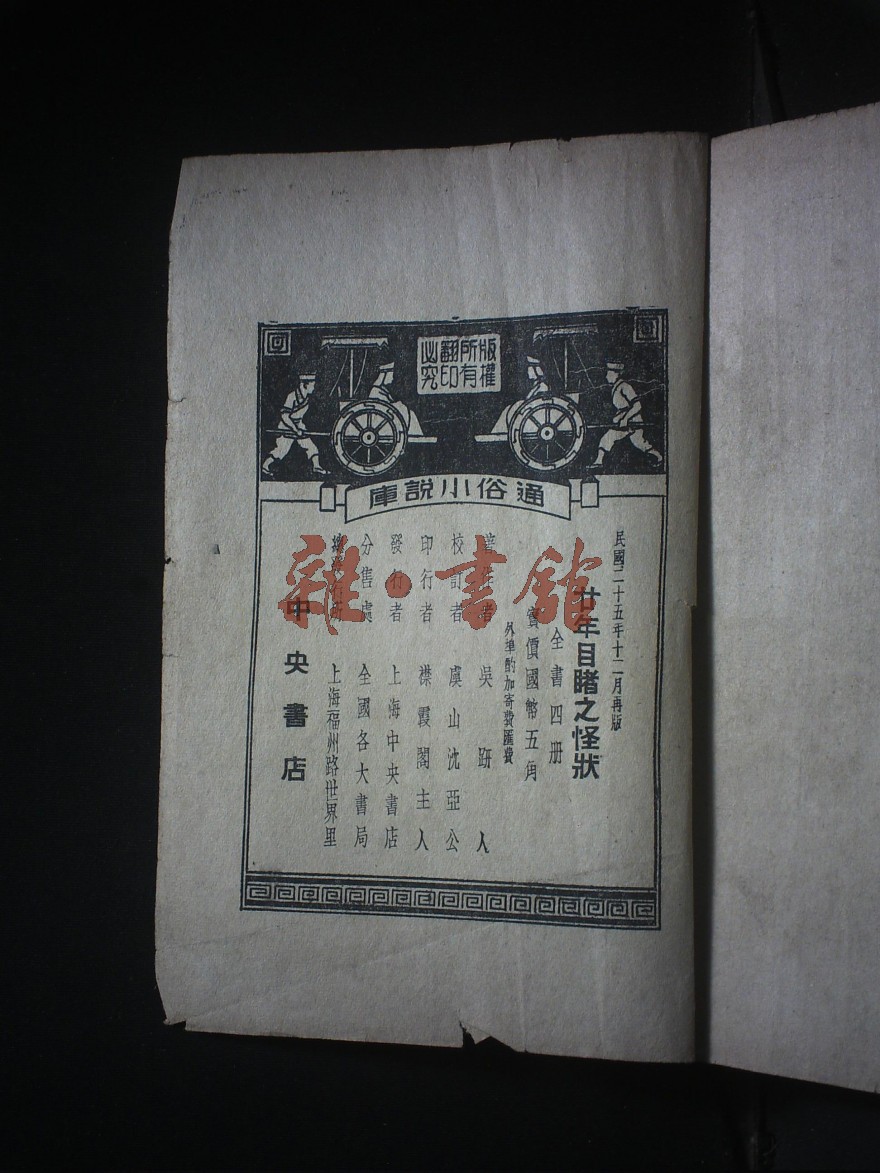 版權
所有
翻印
必究
通俗小說庫
民國二十五年十二月再版
廿年目睹之怪狀
全書四册
實價國幣五角
外埠酌加寄費匯費
著作者 吳趼人
校訂者 虞山沈亞公
印行者 襟霞閣主人
發行者 上海中央書店
分售處 全國各大書局
總發行所 上海福州路世界里
中央書店
雜·書館